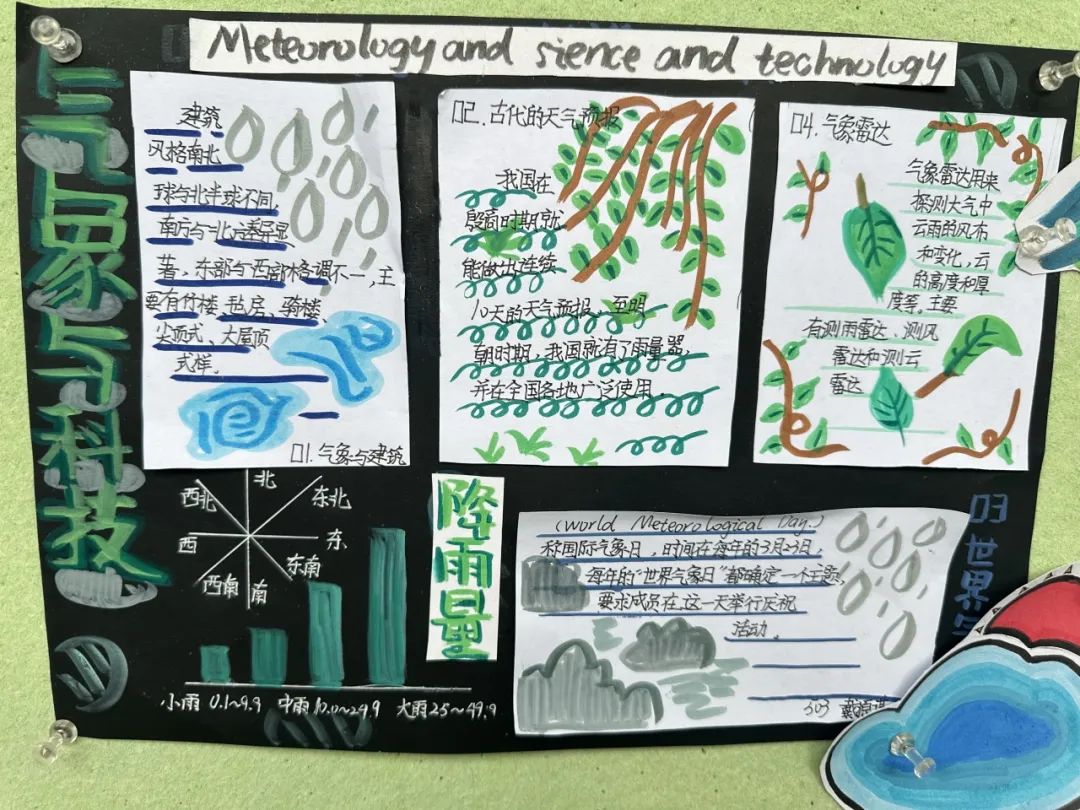 Meteorology and sience and technology
气象与科技
建筑
风格南北
球与北半球不同,
南方与北方差异显
著,东部与西部格调不一,主
要有竹楼、毡房、骑楼、
尖顶式、大屋顶
式样.
01.气象与建筑
02.古代的天气预报
我国在
殷商时期就
能做边连续
10天的天气预报,至明
朝时期,我国就有了雨量器,
并在全国各地广泛使用.
04.气象雷达
气象雷达用来
探测大气中
云雨的风布
和变化,云
的高度和厚
度等.主要
有测雨雷达、测风
雷达和测云
雷达
北
西北
东北
西
东
西南
南
东南
小雨 0.1~9.9 中雨10.0~24.9 大雨25~49.9
降雨量
03世界
(World Meteorological Day.)
称国际气象日,时间在每年的3月23日,
每年的"世界气象日"都确定一个主题,
要求成员在这一天举行庆祝
活动.
503